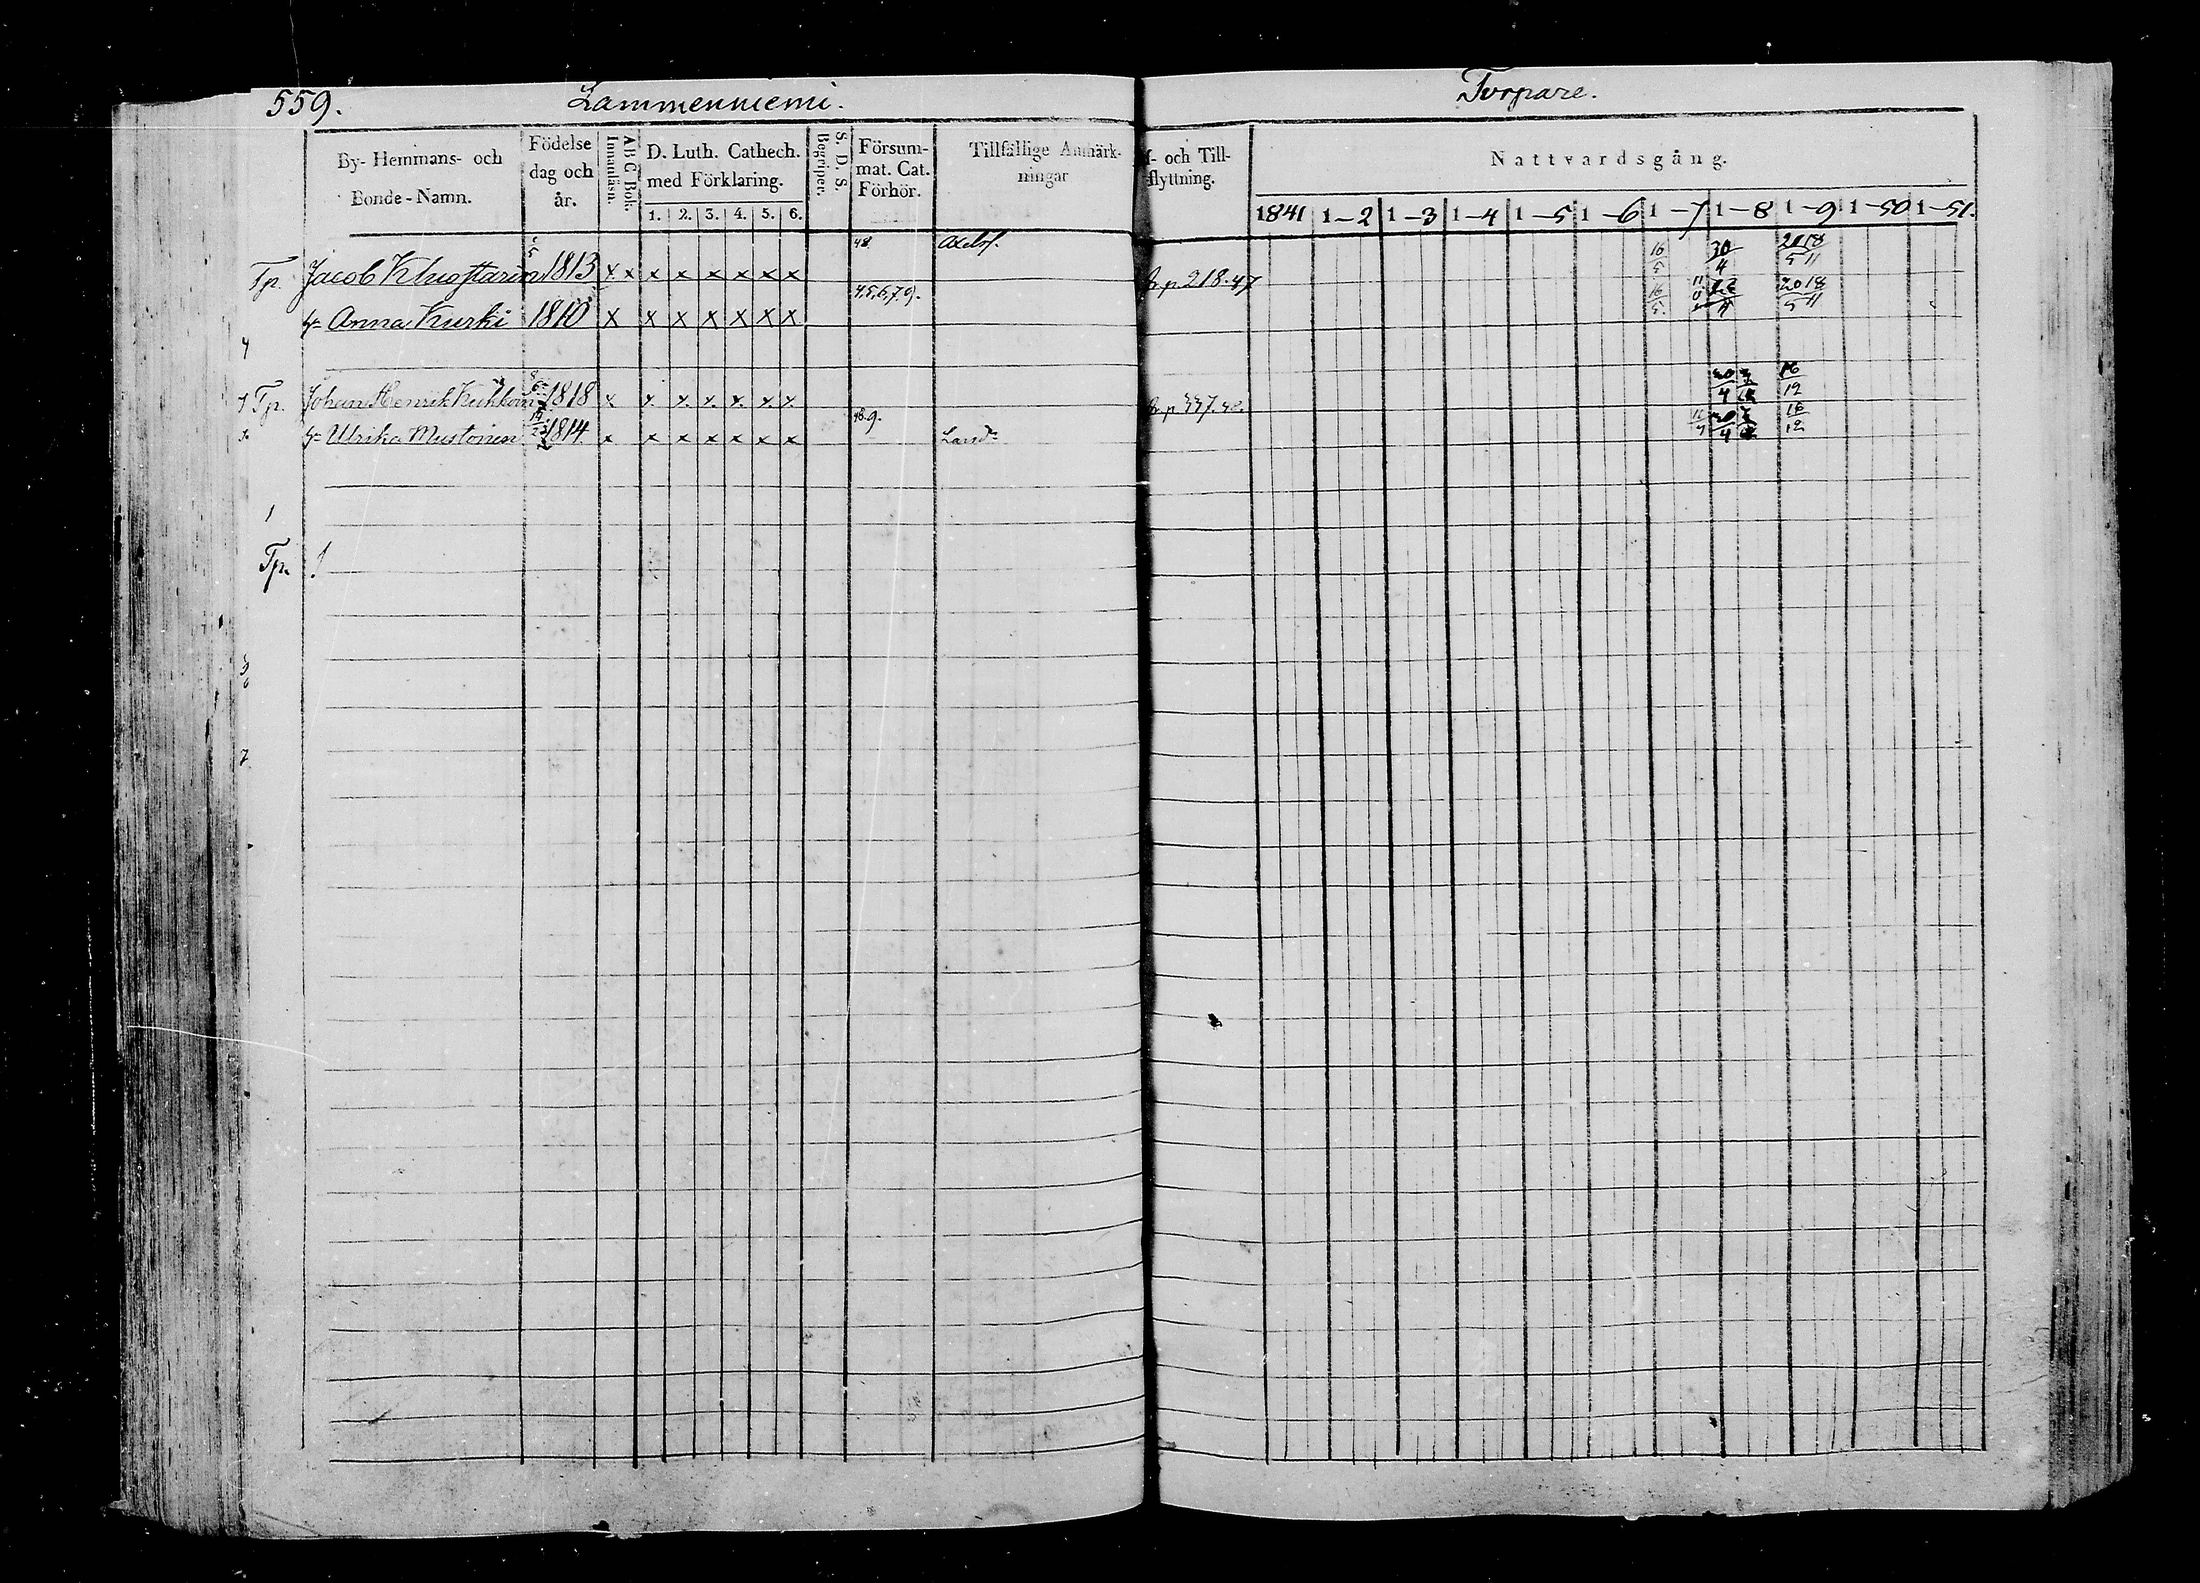 559. Lammenniemi. Torpare.
By- Hemmans- och Bonde-Namn.
Födelse dag och år.
Innanläsn.
A B C Bok.
D. Luth. Cathech. med Förklaring.
1. 2. 3. 4. 5. 6.
S. D. S. Begriper.
Försummat. Cat. Förhör.
Tillfällige Anmärkningar
f- och Tillflyttning.
Nattvardsgång.
1841 1-2 1-3 1-4 1-5 1-6 1-7 1-8 1-9 1-50 1-51.
Tp. Jacob 1813 x x x x x x x x 48 fr p 218.47 16/5 30/4 20/5 18/11
hu Anna Kurki 1810 x x x x x x x 4,5,6,7,9. 16/5 20/5 18/11
Tp. Johan Henrik 1818 x x x x x x x fr p 337.48. 16/12
hu Ulrika Mustonen 1814 x x x x x x x 48.9. 16/12
Tp.